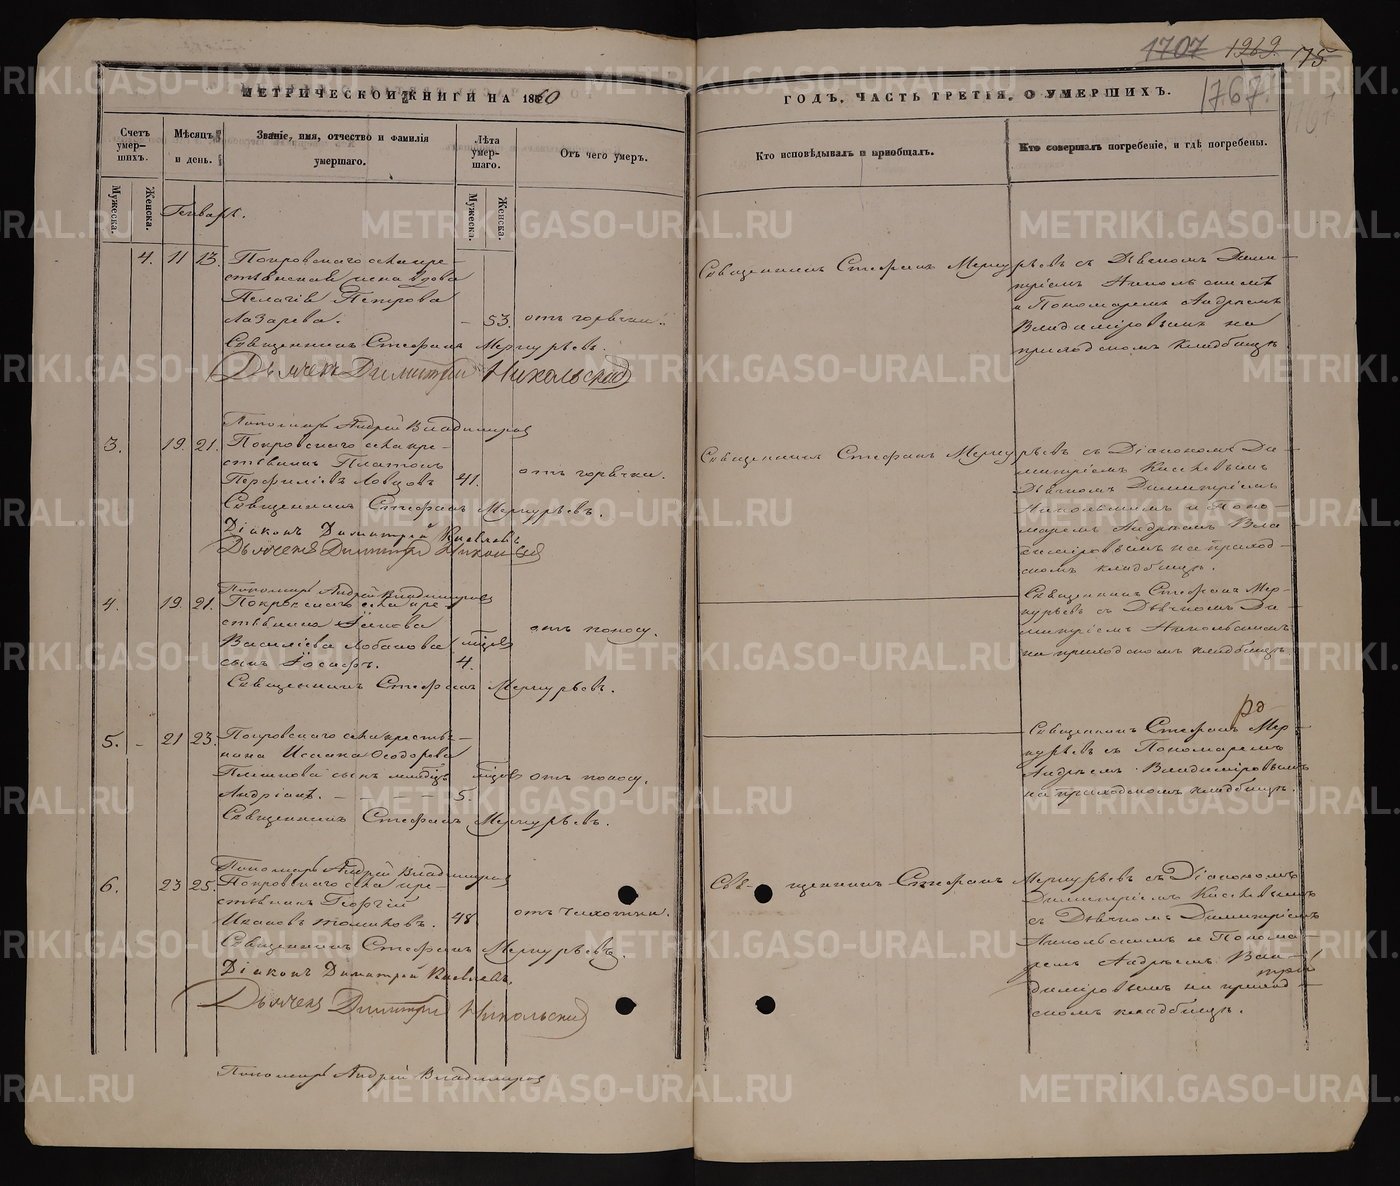 1707 1269 75
МЕТРИЧЕСКОЙ КНИГИ НА 1860
ГОДЪ, ЧАСТЬ ТРЕТІЯ, О УМЕРШИХЪ.
1767
Счетъ умерших.
Мѣсяцъ и день.
Званіе, имя, отчество и фамилія умершаго.
Лѣта умершаго.
Отъ чего умеръ.
Кто исповѣдывалъ и пріобщалъ.
Кто совершалъ погребеніе, и гдѣ погребены.
Мужеска.
Женска.
Мужеска.
Женска.
Генварь.
4. 11 13.
Покровскаго села кре-
стьянская жена вдова
Пелагія Петрова
Лазарева. – 53. отъ горячки.
Священникъ Стефанъ Меркурьевъ.
Дьячекъ Димитрій Никольскій
Пономарь Андрей Владимировъ
Священникъ Стефанъ Меркурьевъ съ Дьячкомъ Дими-
тріемъ Никольскимъ
и Пономаремъ Андреемъ
Владиміровымъ на
приходскомъ кладбищѣ
3. 19. 21.
Покровскаго села кре-
стьянинъ Платонъ
Перфиліевъ Ловцовъ 41. отъ горячки.
Священникъ Стефанъ Меркурьевъ.
Діаконъ Димитрій Киселевъ
Дьячекъ Димитрій Никольскій
Пономарь Андрей Владимировъ
Священникъ Стефанъ Меркурьевъ съ Діакономъ Ди-
митріемъ Киселевымъ
Дьячкомъ Димитріемъ
Никольскимъ и Поно-
маремъ Андреемъ Вла-
диміровымъ на приход-
скомъ кладбищѣ.
4. 19. 21.
Покровскаго села кре-
стьянина
Василіева Лобанова мѣсяцев
сынъ Іосафъ. 4. отъ поносу.
Священникъ Стефанъ Меркурьевъ.
Священникъ Стефанъ Мер-
курьевъ съ Дьячкомъ Ди-
митріемъ Никольскимъ
на приходскомъ кладбищѣ
5. – 21 23.
Покровскаго села крестья-
нина Исаака Ѳеодорова
сынъ младенецъ отъ поносу.
Андріанъ. – – – – 5.
Священникъ Стефанъ Меркурьевъ.
Пономарь Андрей Владимировъ
ра
Священникъ Стефанъ Мер-
курьевъ съ Пономаремъ
Андреемъ Владиміровымъ
на приходскомъ кладбищѣ.
6. 23 25.
Покровскаго села кре-
стьянинъ Георгій
Ивановъ 48 отъ чахотки.
Священникъ Стефанъ Меркурьевъ.
Діаконъ Димитрій Киселевъ.
Дьячекъ Димитрій Никольскій
Пономарь Андрей Владимировъ
Священникъ Стефанъ Меркурьевъ съ Діакономъ
Димитріемъ Киселевымъ
съ Дьячкомъ Димитріемъ
Никольскимъ и Понома-
ремъ Андреемъ Вла-
диміровымъ на приход-
скомъ кладбищѣ.
METRIKI.GASO-URAL.RU